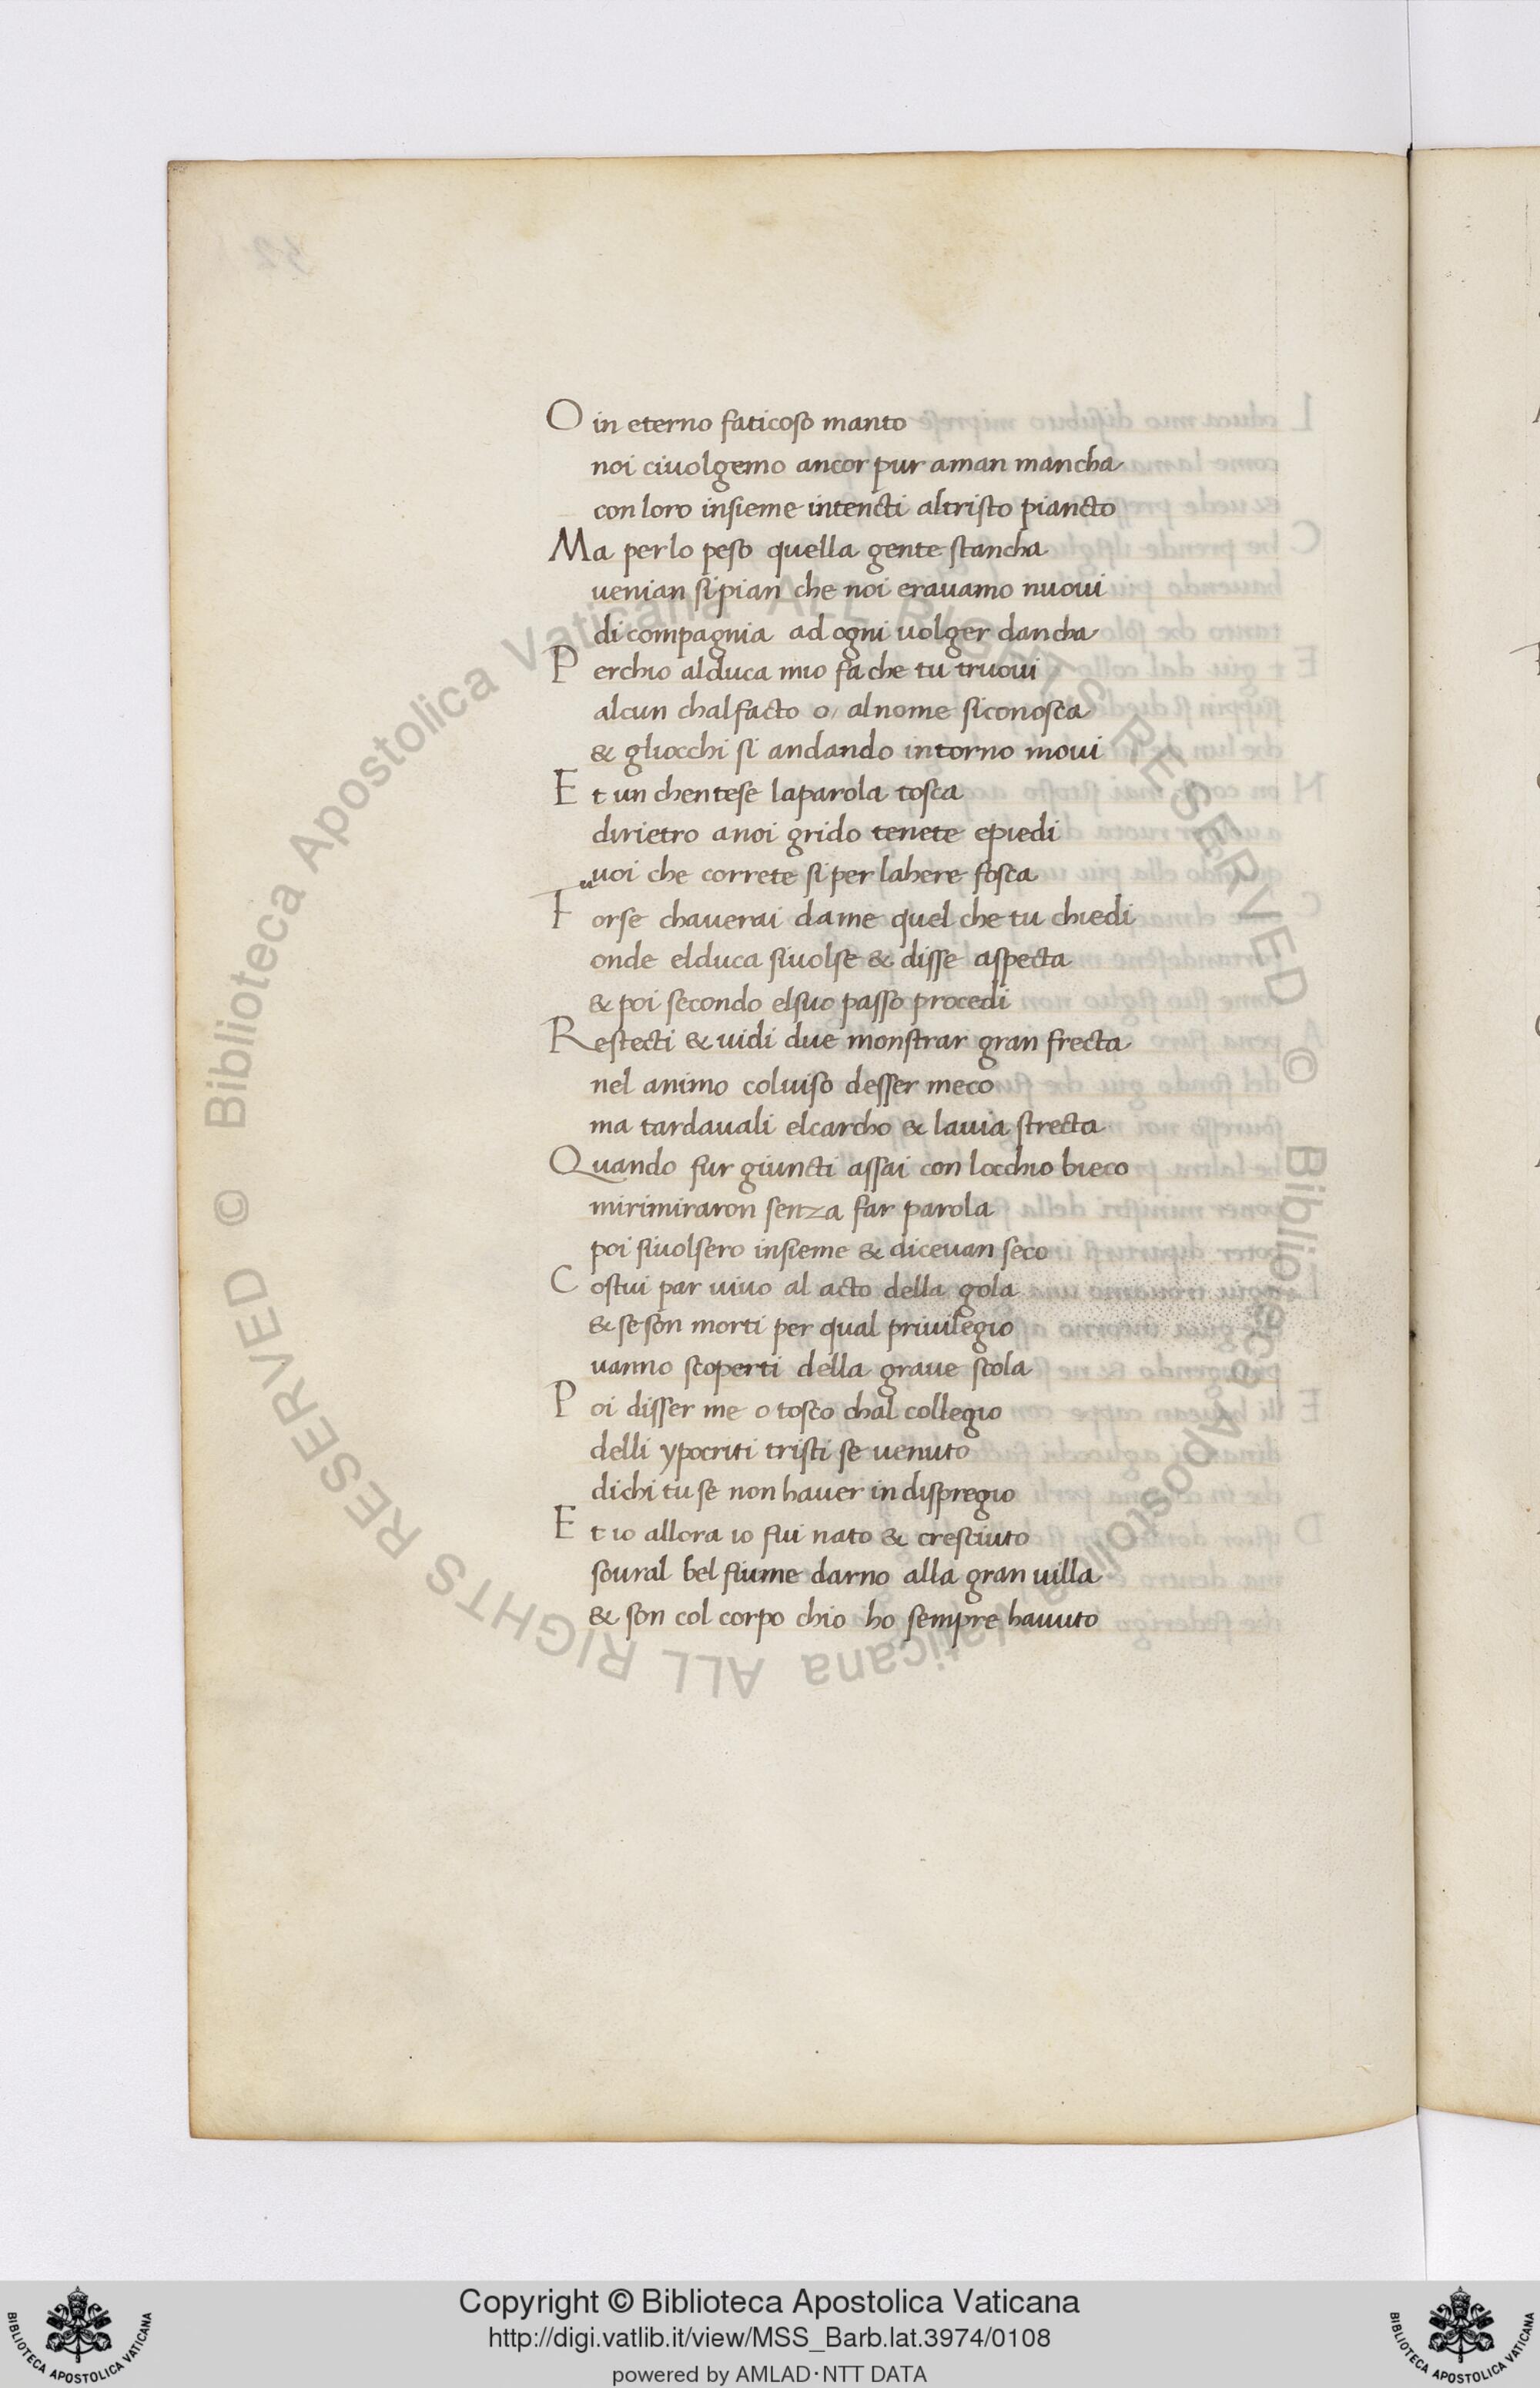 O in eterno faticoso manto
noi ciuolgemo ancor pur aman mancha
con loro insieme intencti altristo piancto
Ma perlo peso quella gente stancha
uenian sipian che noi erauamo nuoui
di compagnia ad ogni uolger dancha
P erchio alduca mio fa che tu truoui
alcun chalfacto o/ alnome siconosca
& gliocchi si andando intorno moui
E t un chentese laparola tosca
dirietro anoi grido tenete epiedi
uoi che correte siper lahere fosca
F orse chauerai dame quel che tu chiedi
onde elduca siuolse & disse aspecta
& poi secondo elsuo passo procedi
Restecti & uidi due monstrar gran frecta
nel animo coluiso desser meco
ma tardauali elcarcho & lauia strecta
Quando fur giuncti assai con locchio bieco
mirimiraron senza far parola
poi siuolsero insieme & diceuan seco
C ostui par uiuo al acto della gola
& seson morti per qual priuilegio
uanno scoperti della graue stola
P oi disser me o tosco chal collegio
delli ypocriti tristi se uenuto
dichi tu se non hauer in dispregio
E t io allora io fui nato & cresciuto
soural bel fiume darno alla gran uilla
& son col corpo chio ho sempre hauuto
© Biblioteca Apostolica Vaticana ALL RIGHTS RESERVED © Biblioteca Apostolica Vaticana ALL RIGHTS RESERVED
Copyright © Biblioteca Apostolica Vaticana
http://digi.vatlib.it/view/MSS_Barb.lat.3974/0108
powered by AMLAD·NTT DATA
BIBLIOTECA APOSTOLICA VATICANA
BIBLIOTECA APOSTOLICA VATICANA